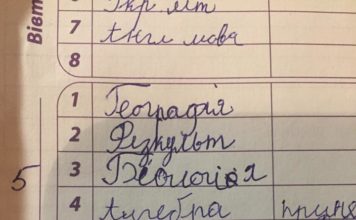 Вівт
6 Укр літ
7 Англ мова
8
5
1 Географія
2 Фізкульт
3 Біологія
4 Алгебра